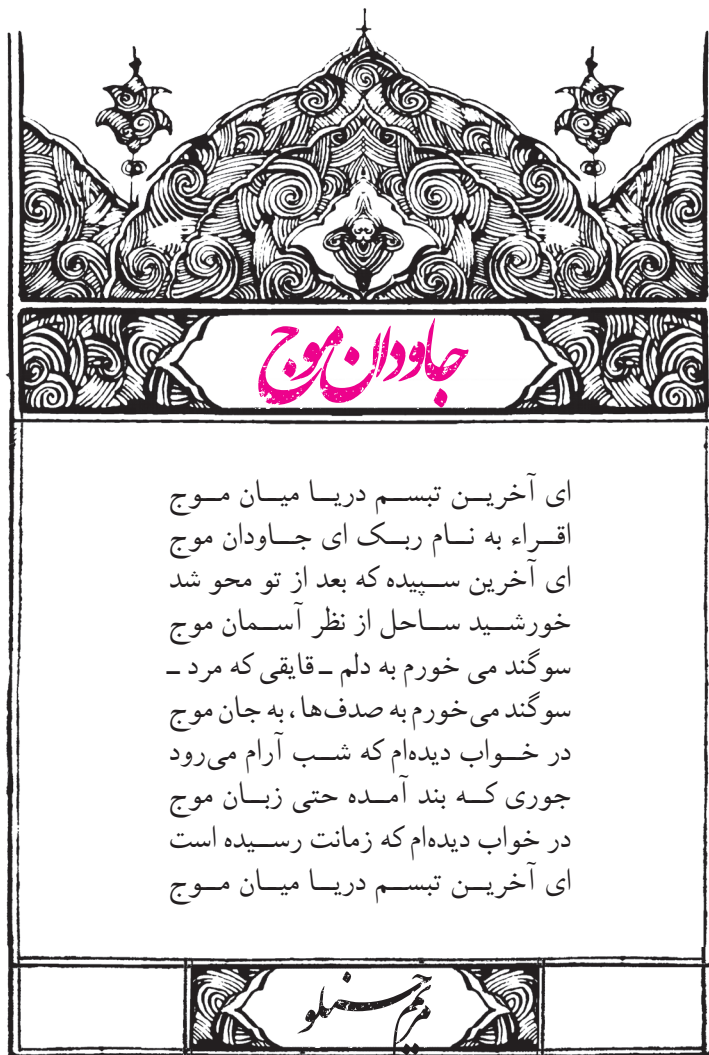 جاودان موج
ای آخرین تبسم دریا میان موج
اقراء به نام ربک ای جاودان موج
ای آخرین سپیده که بعد از تو محو شد
خورشید ساحل از نظر آسمان موج
سوگند می خورم به دلم ـ قایقی که مرد ـ
سوگند می‌خورم به صدف‌ها، به جان موج
در خواب دیده‌ام که شب آرام می‌رود
جوری که بند آمده حتی زبان موج
در خواب دیده‌ام که زمانت رسیده است
ای آخرین تبسم دریا میان موج
مریم حسنلو